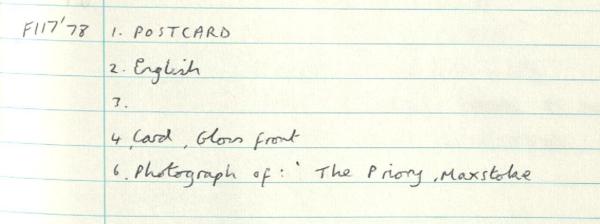 F117'78 1. POSTCARD
2. English
3.
4. Card, Gloss front
6. Photograph of: ' The Priory, Maxstoke